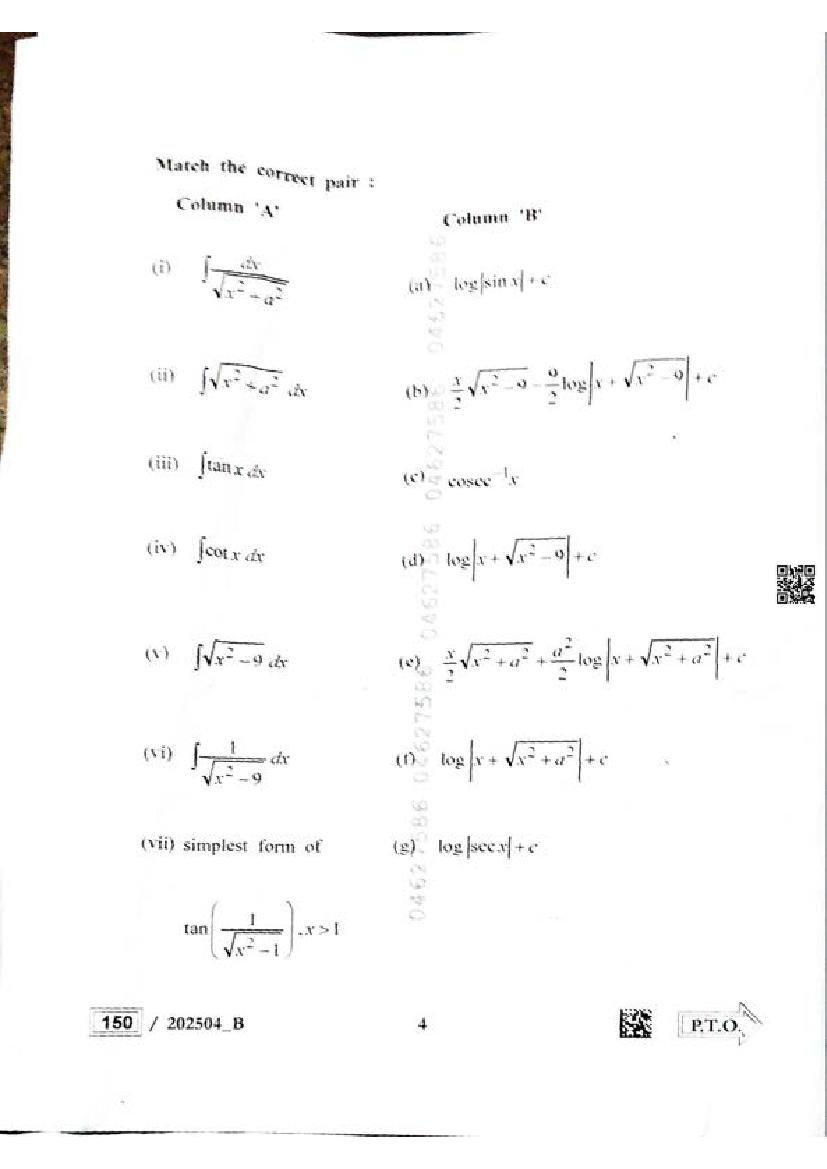 Match the correct pair :
Column 'A' Column 'B'
(i) ∫ dx / √(x² + a²) (a) log|sin x| + c
(ii) ∫√(x² + a²) dx (b) x/2 √(x² − 9) − 9/2 log|x + √(x² − 9)| + c
(iii) ∫tan x dx (c) cosec⁻¹x
(iv) ∫cot x dx (d) log|x + √(x² − 9)| + c
(v) ∫√(x² − 9) dx (e) x/2 √(x² + a²) + a²/2 log|x + √(x² + a²)| + c
(vi) ∫ 1/√(x² − 9) dx (f) log|x + √(x² + a²)| + c
(vii) simplest form of (g) log|sec x| + c
tan(1/√(x² − 1)), x > 1
04627586 04627586 04627586 04627586 04627586
150 / 202504_B 4 P.T.O.